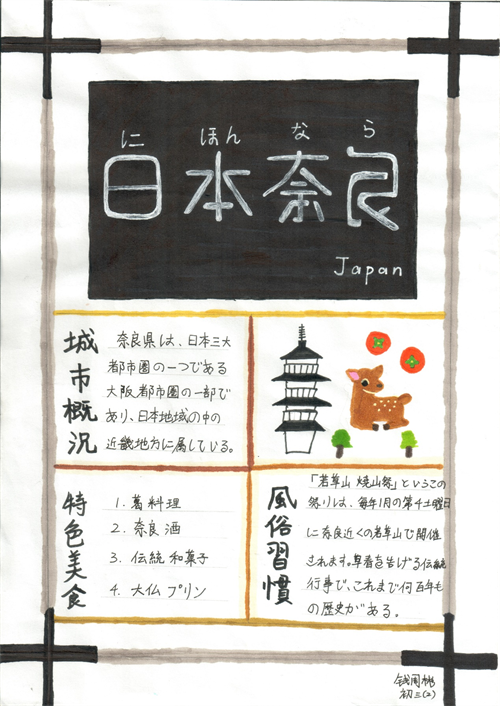 に ほん な ら
日本奈良
Japan
城市概況
奈良県は、日本三大
都市圏の一つである
大阪都市圏の一部で
あり、日本地域の中の
近畿地方に属している。
特色美食
1. 葛料理
2. 奈良酒
3. 伝統和菓子
4. 大仏プリン
風俗習慣
「若草山焼山祭」というこの
祭りは、毎年1月の第4土曜日
に奈良近くの若草山で開催
されます。早春を告げる伝統
行事で、これまで何百年も
の歴史がある。
初三(2)